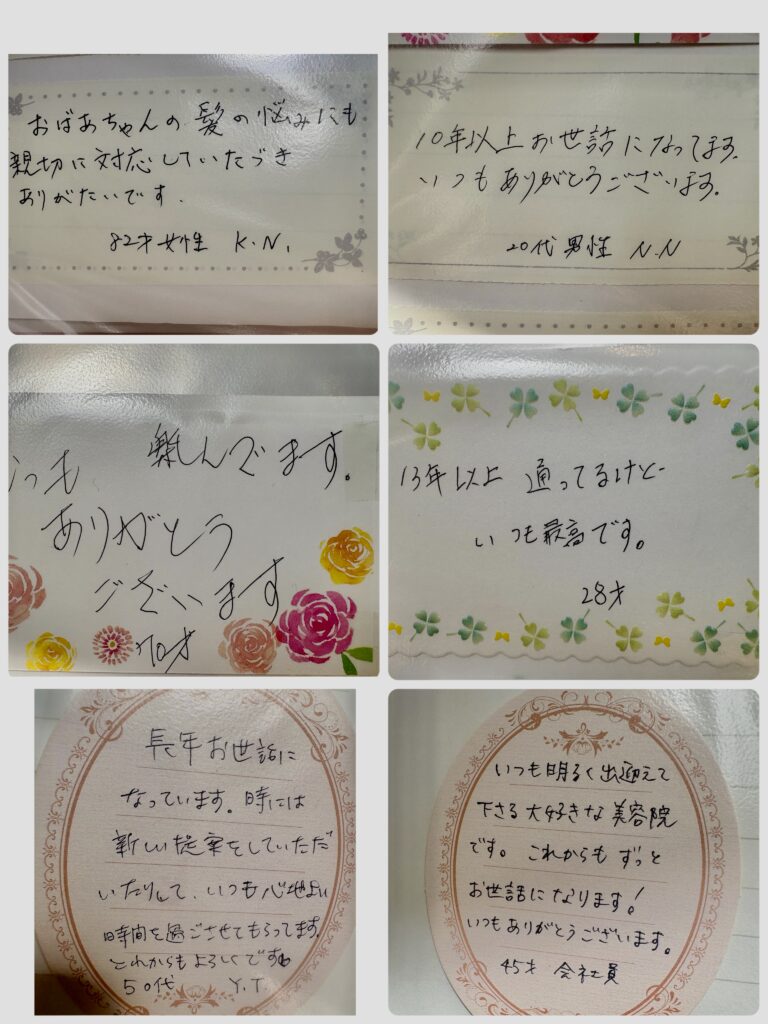 おばあちゃんの髪の悩みにも
親切に対応していただき
ありがたいです.
82才女性 K.N.
10年以上お世話になってます.
いつもありがとうございます。
20代男性 N.N
いつも んでます。
ありがとう
ございます
70才
13年以上 通ってるけど
いつも最高です。
28才
長年お世話に
なっています。時には
新しい提案をしていただ
いたりして、いつも心地よい
時間を過ごさせてもらってます。
これからもよろしくです。
50代 Y.T.
いつも明るく出迎えて
下さる大好きな美容院
です。これからもずっと
お世話になります!
いつもありがとうございます。
45才 会社員